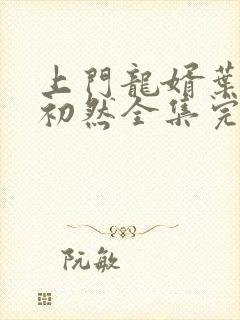 上門龍婿葉
初然全集完
阮敏